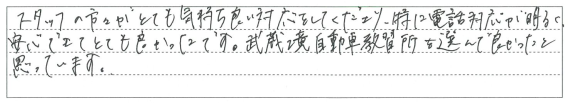 スタッフの方々がとても気持ち良い対応をしてくださり、特に電話対応が明るく
安心できてとても良かったです。武蔵境自動車教習所を選んで良かったと
思っています。